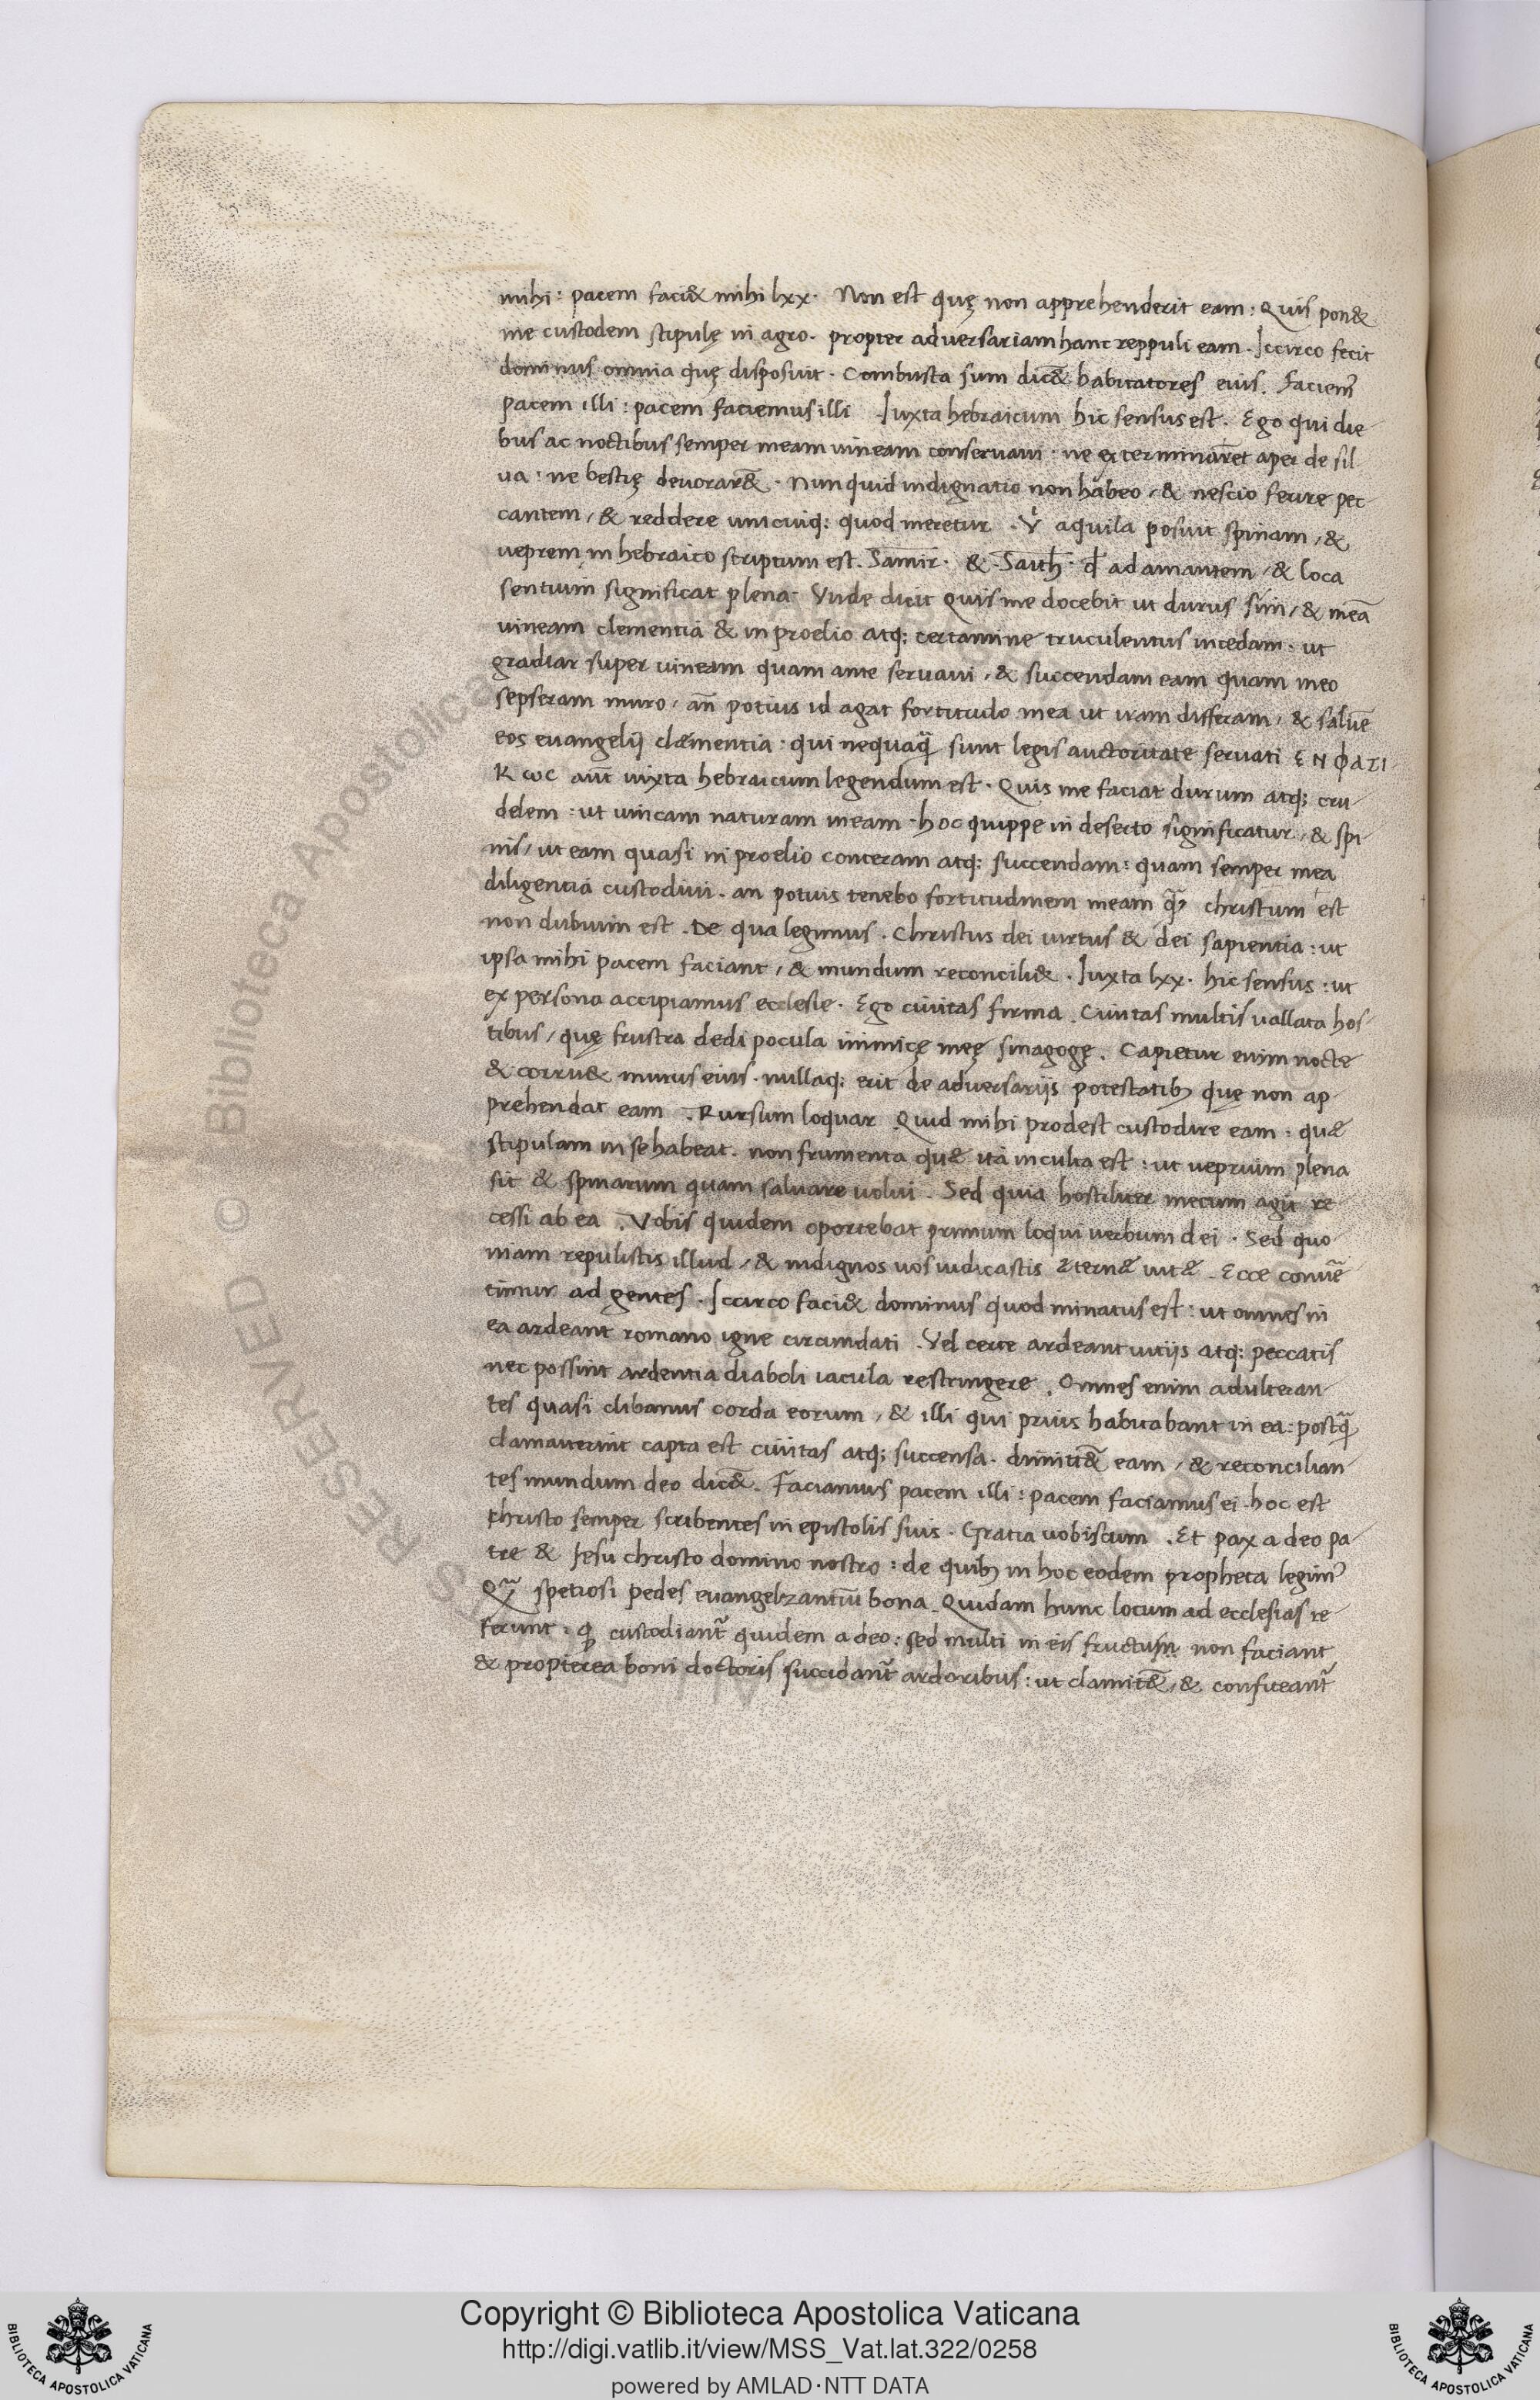 mihi : pacem faci& mihi lxx · Non est quę non apprehenderit eam : Quis pon&
me custodem stipulę in agro · propter adversariam hanc reppuli eam · Iccirco fecit
dominus omnia quę disposuit · Combusta sum dic&̄ habitatores eius . Faciem᷒
pacem illi : pacem faciemus illi Iuxta hebraicum hic sensus est . Ego qui die
bus ac noctibus semper meam uineam conseruaui · ne exterminar̄et aper de sil
ua : ne bestię deuorar&̄ · Nunquid indignatio non habeo , & nescio ferire pec
cantem , & reddere unicuiq; quod meretur . V̓ aquila posuit spinam , &
ueprem in hebraico scriptum est . Samir · & Saith · qđ adamantem , & loca
sentium significat plena · Vnde dicit Quis me docebit ut durus sim , & meā
uineam clementia & in proelio atq; certamine truculentus incedam · ut
gradiar super uineam quam ante seruaui , & succendam eam quam meo
sepseram muro , an̄ potius id agat fortitudo mea ut iram differam , & saluē
eos euangelij clæmentia : qui nequaq̄ sunt legis auctoritate seruati ΕΝΦΑΤΙ
Κ ωC aut̄ iuxta hebraicum legendum est · Quis me faciat durum atq; cru
delem : ut uincam naturam meam · hoc quippe in deserto significatur , & spi
nis , ut eam quasi in proelio conteram atq; succendam : quam semper mea
diligentia custodiui . an potuis tenebo fortitudinem meam q̄ȝ christum est
non dubium est . De qua legimus . Christus dei uirtus & dei sapientia : ut
ipsa mihi pacem faciant , & mundum reconcili& . Iuxta lxx . hic sensus : ut
ex persona accipiamus ecclesie . Ego ciuitas firma . Ciuitas multis uallata hos
tibus , quę frustra dedi pocula inimicę meę sinagogę . Capietur enim nocte
& corru& murus eius . nullaq; erit de adversarijs potestatibȝ quę non ap
prehendat eam . Rursum loquar Quid mihi prodest custodire eam : quæ
stipulam in se habeat . non frumenta quæ ita inculta est : ut ueprium plena
sit & spinarum quam saluare uolui . Sed quia hostiliter mecum agit re
cessi ab ea . Vobis quidem oportebat primum loqui uerbum dei . Sed quo
niam repulistis illud , & indignos uos iudicastis æternæ uitæ . Ecce conuē
timur ad gentes . Iccirco faci& dominus quod minatus est : ut omnes in
ea ardeant romano igne circumdati . Vel certe ardeant uitijs atq; peccatis
nec possint ardentia diaboli iacula restringere . Omnes enim adulteran
tes quasi clibanus corda eorum , & illi qui prius habitabant in ea : postq̄
clamauerint capta est ciuitas atq; succensa . dimitt&̄ eam , & reconcilian
tes mundum deo dic&̄ . Faciamus pacem illi : pacem faciamus ei . hoc est
christo semper scribentes in epistolis suis . Gratia uobiscum . Et pax a deo pa
tre & Iesu christo domino nostro : de quibȝ in hoc eodem propheta legim᷒
Q̄ȝ spetiosi pedes euangelizantiū bona . Quidam hunc locum ad ecclesias re
ferunt : ꝙ custodiant᷑ quidem a deo : sed multi in eis fructum non faciant
& propterea boni doctoris succidant᷑ ardoribus : ut clamit&̄ , & confiteant᷑
RESERVED © Biblioteca Apostolica
Copyright © Biblioteca Apostolica Vaticana
http://digi.vatlib.it/view/MSS_Vat.lat.322/0258
powered by AMLAD·NTT DATA
BIBLIOTECA APOSTOLICA VATICANA
BIBLIOTECA APOSTOLICA VATICANA